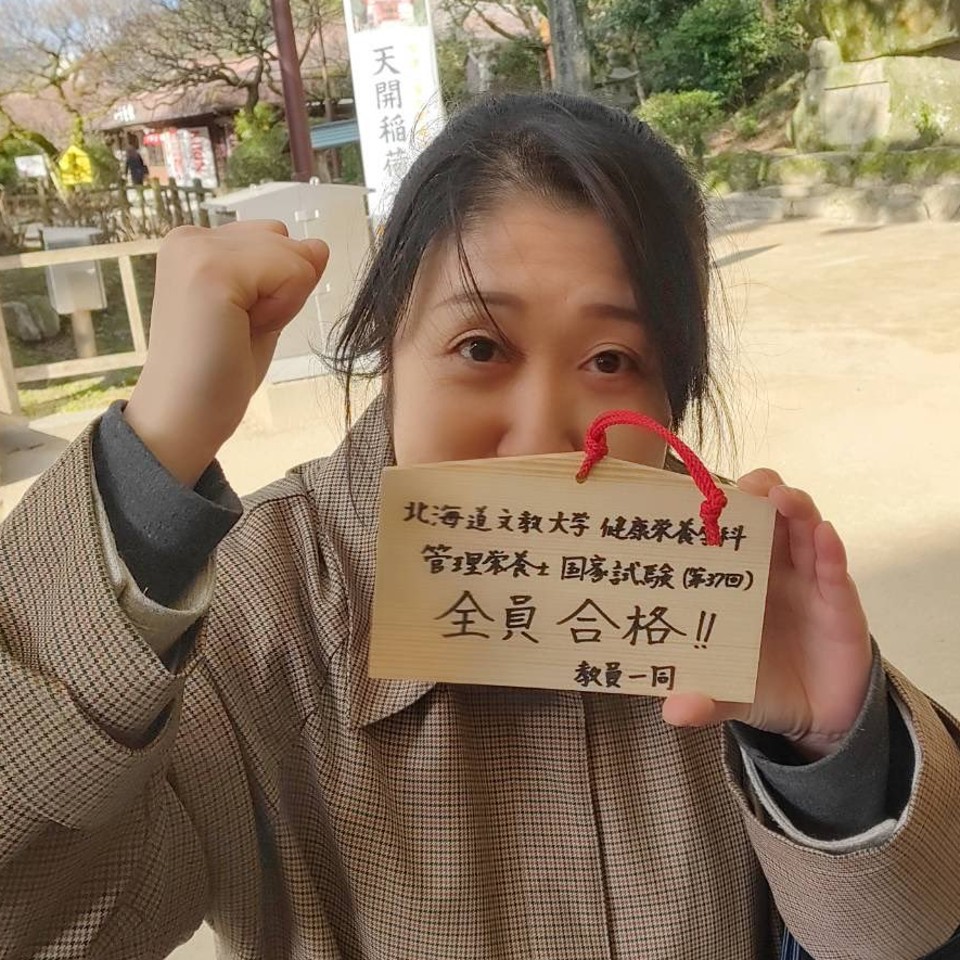 天開稲荷
北海道文教大学 健康栄養学科
管理栄養士 国家試験 (第37回)
全員 合格!!
教員一同